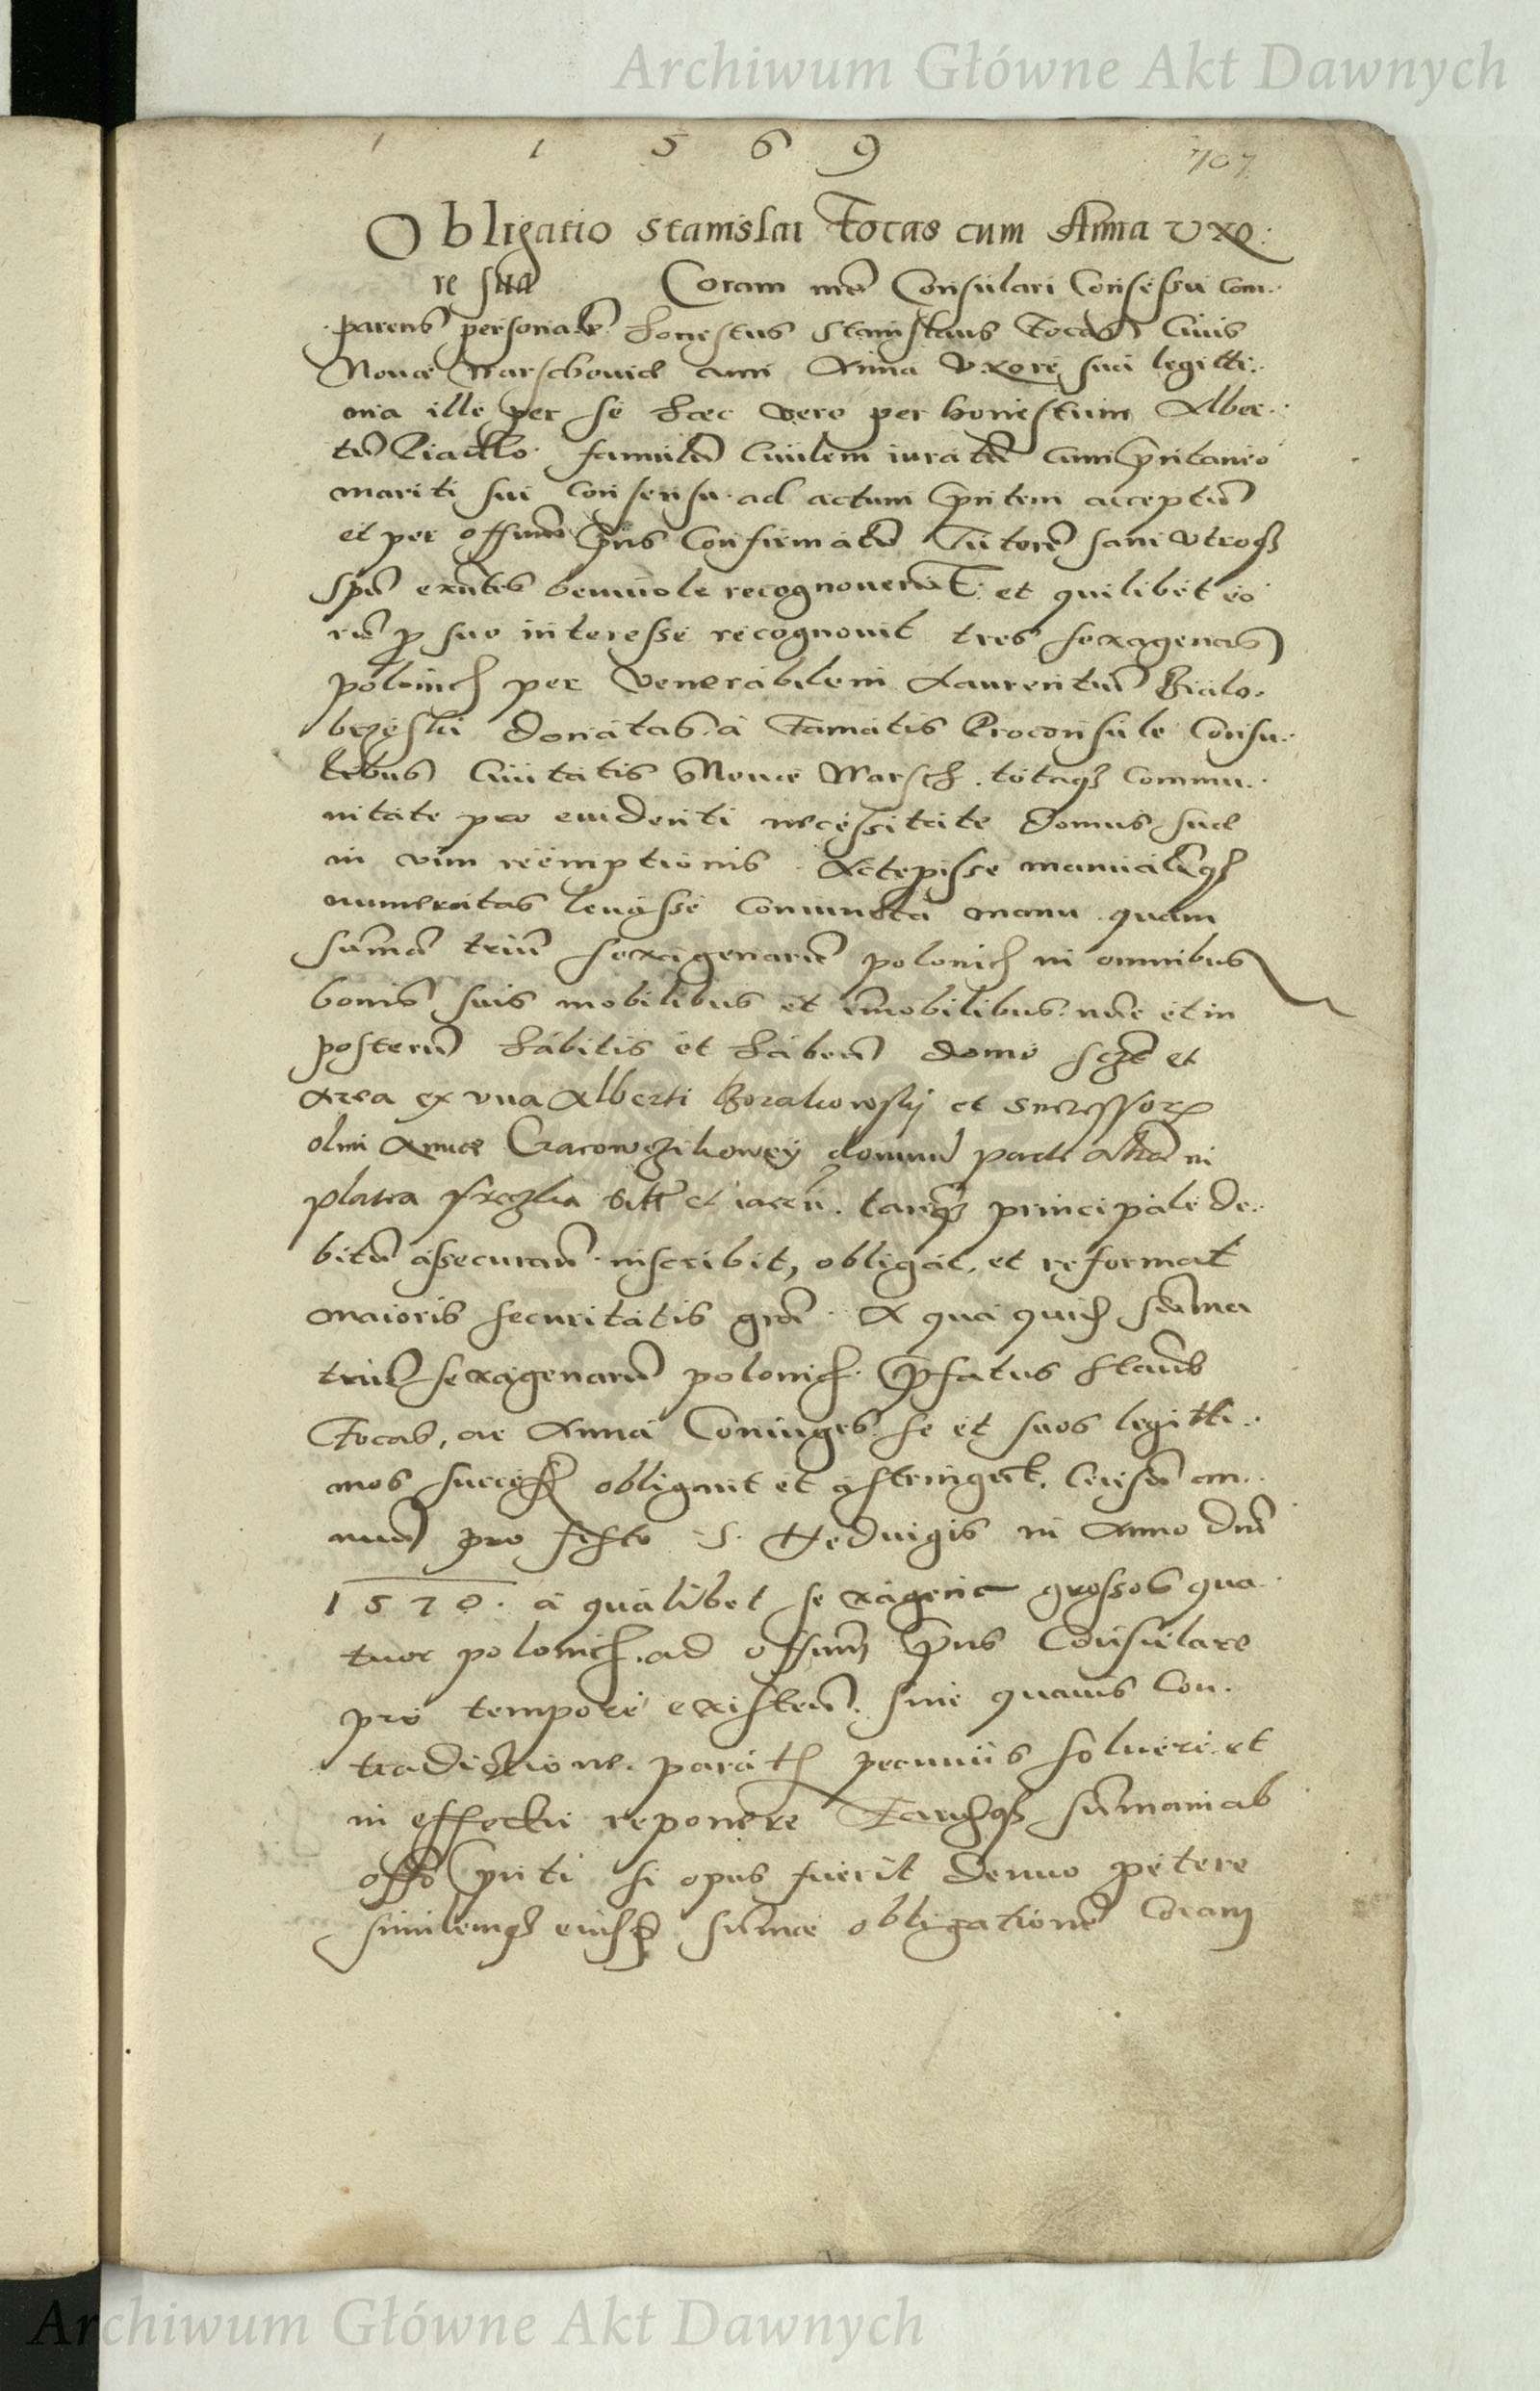 Archiwum Główne Akt Dawnych
1 5 6 9
707
Obligatio Stanislai Focas cum Anna vxo:
re sua Coram me Consulari Consessu com:
parens personalr honestus Stanislaus Focas Ciuis
Nouae Warschouiae cum Anna vxore sua legitti:
ma ille per se haec vero per honestum Alber:
tu famulu Ciuilem iuratu cum spontaneo
mariti sui consensu ad actum pntem acceptu
et per offium pns Confirmatu Tutore sani vtroqz
spu exntes beniuole recognouerut et quilibet eo
ru p suo interesse recognouit tres sexagenas
polonich per Venerabilem Laurentiu Bialo.
bezeski donatas a famatis Proconsule Consu:
libus Ciuitatis Nouae Warsch. totaqz Commu:
nitate pro euidenti necessitate domus suae
in vim reemptionis Accepisse manualiterqz
numeratas leuasse coniuncta manu quam
suma triu sexagenaru polonich in omnibus
bonis suis mobilibus et imobilibus nuc et in
posteru habitis et haben domo scze et
Area ex vna Alberti et Successorz
olim Annae domum parte alia in
platea sitt et iacen. tanqz principale de:
bitu assecuran inscribit, obligat, et reformat
maioris securitatis gra. A qua quidz suma
triu sexagenaru polonich. pfatus Stanis
Focas, ac Anna Coniuges se et suos legitti:
mos succes obligant et astringut. Censu an:
nuu pro festo S. Heduigis in Anno Dni
1570. a qualibet sexagena grossos qua:
tuor polonich. ad offium pns Consulare
pro tempore existen. sine quauis Con:
tradictione. parath pecuniis soluere et
in effectu reponere Eandqz sumam ab
offo pnti si opus fuerit denuo petere
similemqz eiusd sumae obligatione Coram
Archiwum Główne Akt Dawnych